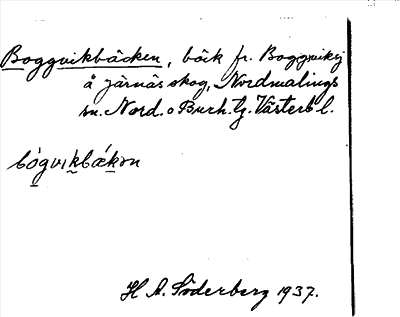 Boggvikbäcken, bäck fr. Boggvikj
å järnäs skog, Nordmalings
sn. Nord. o Burh. tg. Västerb l.
bógvikbǽkən
H A. Söderberg 1937.